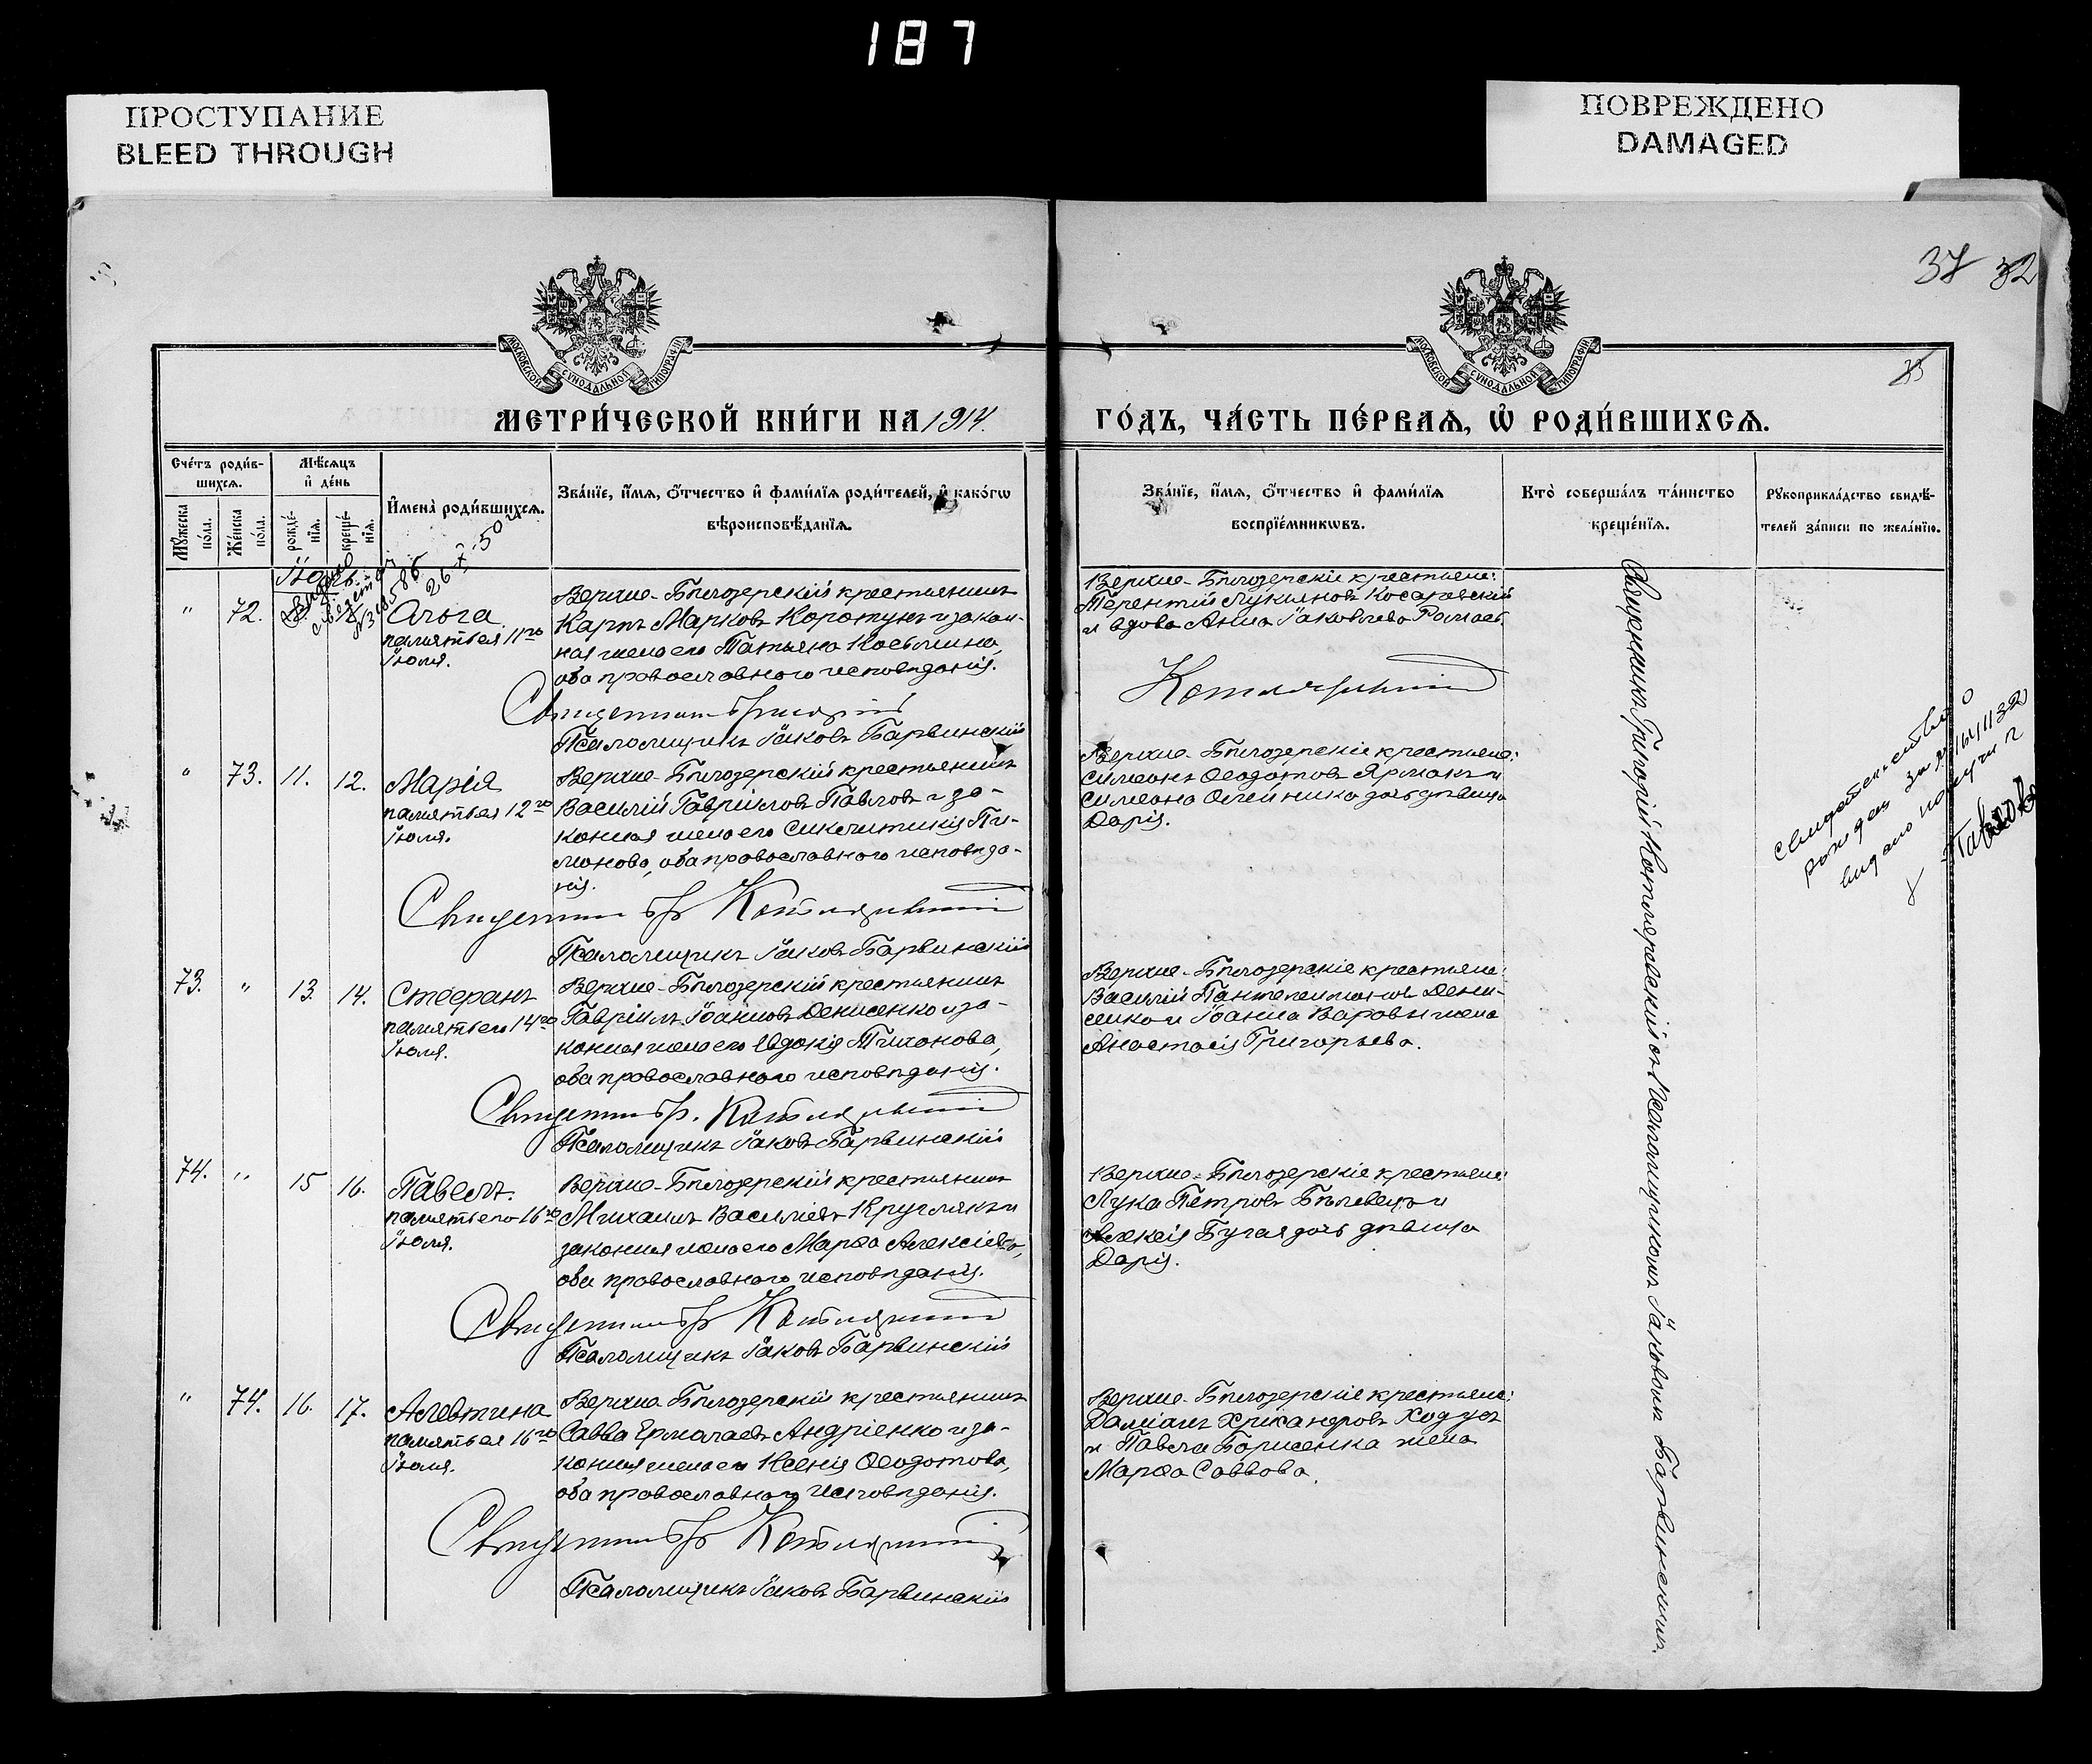 187
ПРОСТУПАНИЕ
BLEED THROUGH
ПОВРЕЖДЕНО
DAMAGED
37 32
33
МОСКОВСКОЙ СѴНОДАЛЬНОЙ ТИПОГРАФІИ
МОСКОВСКОЙ СѴНОДАЛЬНОЙ ТИПОГРАФІИ
МЕТРИ́ЧЕСКОЙ КНИ́ГИ НА 1914.
ГО́ДЪ, ЧА́СТЬ ПЕ́РВАѦ, Ѡ҆ РОДИ́ВШИХСѦ.
Сче́тъ роди́в-
шихсѧ.
Мꙋ́жеска по́ла.
Же́нска по́ла.
Мѣ́сѧцъ
и҆ де́нь
рожде́-
нїѧ.
креще́-
нїѧ.
И҆мена̀ роди́вшихсѧ.
Зва́нїе, и҆́мѧ, ѻ҆́тчество и҆ фами́лїѧ роди́телей, и҆ како́гѡ
вѣроисповѣ́данїѧ.
Зва́нїе, и҆́мѧ, ѻ҆́тчество и҆ фами́лїѧ
воспрїе́мникѡвъ.
Кто̀ соверша́лъ та́инство
креще́нїѧ.
Рꙋкоприкла́дство свидѣ́-
телей за́писи по жела́нїю.
Іюль
26-7-50 г
" 72.
Ольга
память ея 11го
Іюля.
Верхне-Бѣлозерскій крестьянинъ
Карпъ Марковъ Коротунъ и закон-
ная жена его Татьяна Косьмина,
оба православнаго исповѣданія.
Священникъ Григорій
Псаломщикъ Іаковъ Барвинскій
Верхне-Бѣлозерскіе крестьяне:
Терентій Лукьяновъ Косаревскій
и вдова Анна Іаковлева
Котляревскій
" 73. 11. 12.
Марія
память ея 12го
Іюля.
Верхне-Бѣлозерскій крестьянинъ
Василій Гавріиловъ Павловъ и за-
конная жена его Синклитикія
оба православнаго исповѣда-
нія.
Священникъ Гр Котляревскій
Псаломщикъ Іаковъ Барвинскій
Верхне-Бѣлозерскіе крестьяне:
Симеонъ Ѳеодотовъ Ярмакъ и
Симеона Олейника дочь дѣвица
Дарія.
свидетельство о
рожден за №
видано получи г
Павлов
73. " 13. 14.
Стефанъ
память его 14го
Іюля.
Верхне-Бѣлозерскій крестьянинъ
Гавріилъ Іоанновъ Денисенко и за-
конная жена его Евдокія Тихонова,
оба православнаго исповѣданія.
Священникъ Гр. Котляревскій
Псаломщикъ Іаковъ Барвинскій
Верхне-Бѣлозерскіе крестьяне:
Василій Пантелеимоновъ Дени-
сенко и Іоанна Варавы жена
Анастасія Григорьева.
74. " 15 16.
Павелъ.
память его 16го
Іюля.
Верхне-Бѣлозерскій крестьянинъ
Михаилъ Василіевъ Круглякъ и
законная жена его Марѳа Алексіева,
оба православнаго исповѣданія.
Священникъ Гр Котляревскій
Псаломщикъ Іаковъ Барвинскій
Верхне-Бѣлозерскіе крестьяне:
Лука Петровъ Бѣлевецъ и
Алексія Бугая дочь дѣвица
Дарія.
" 74. 16. 17.
Алевтина
память ея 16го
Іюля.
Верхне-Бѣлозерскій крестьянинъ
Савва Ермолаевъ Андріенко и за-
конная жена его Ксенія Ѳеодотова,
оба православнаго исповѣданія.
Священникъ Гр Котляревскій
Псаломщикъ Іаковъ Барвинскій
Верхне-Бѣлозерскіе крестьяне:
Даміанъ Никаноровъ
и Павла Борисенка жена
Марѳа Саввова.
Священникъ Григорій Котляревскій съ Псаломщикомъ Іаковомъ Барвинскимъ.